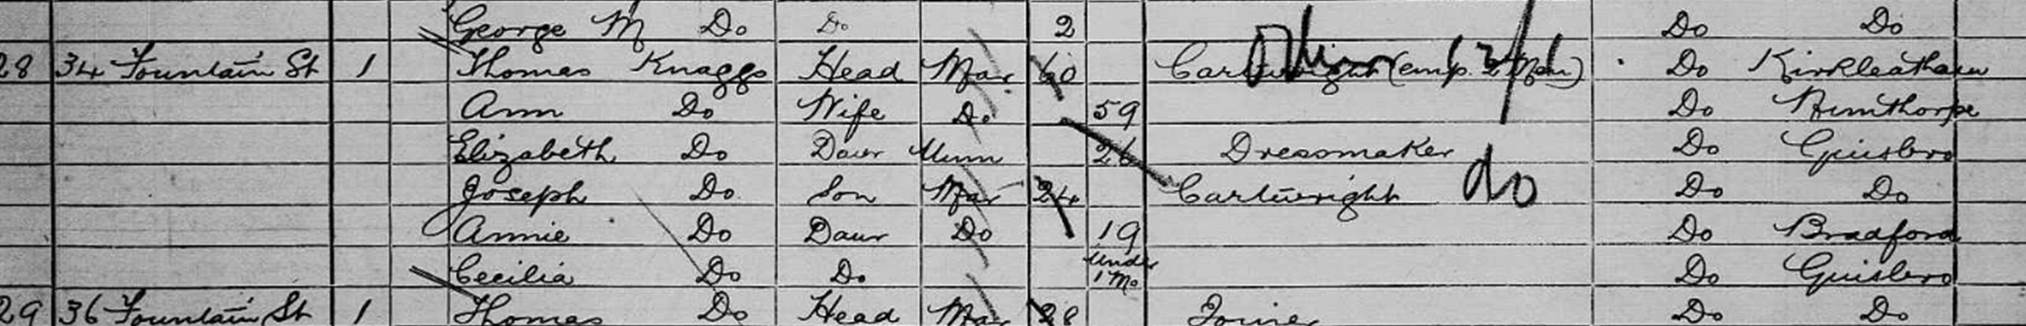 George M Do Do 2 Do Do
28 34 Fountain St 1 Thomas Knaggs Head Mar 60 Cartwright (emp. 2 Men) Do Kirkleatham
Ann Do Wife Do 59 Do
Elizabeth Do Daur Unm 26 Dressmaker Do Guisbro
Joseph Do Son Mar 24 Cartwright do Do Do
Annie Do Daur Do 19 Do Bradford
Cecilia Do Do Under 1 Mo Do Guisbro
29 36 Fountain St 1 Thomas Do Head Mar 28 Joiner Do Do